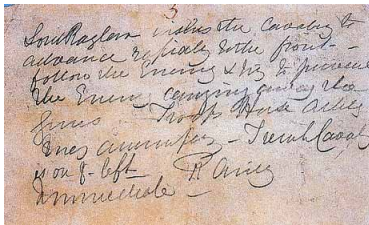 3
Lord Raglan wishes the Cavalry to
advance rapidly to the front –
follow the Enemy & try to prevent
the Enemy carrying away the
guns – Troop Horse Artly
may accompany – French Cavalry
is on yr left
Immediate R Airey